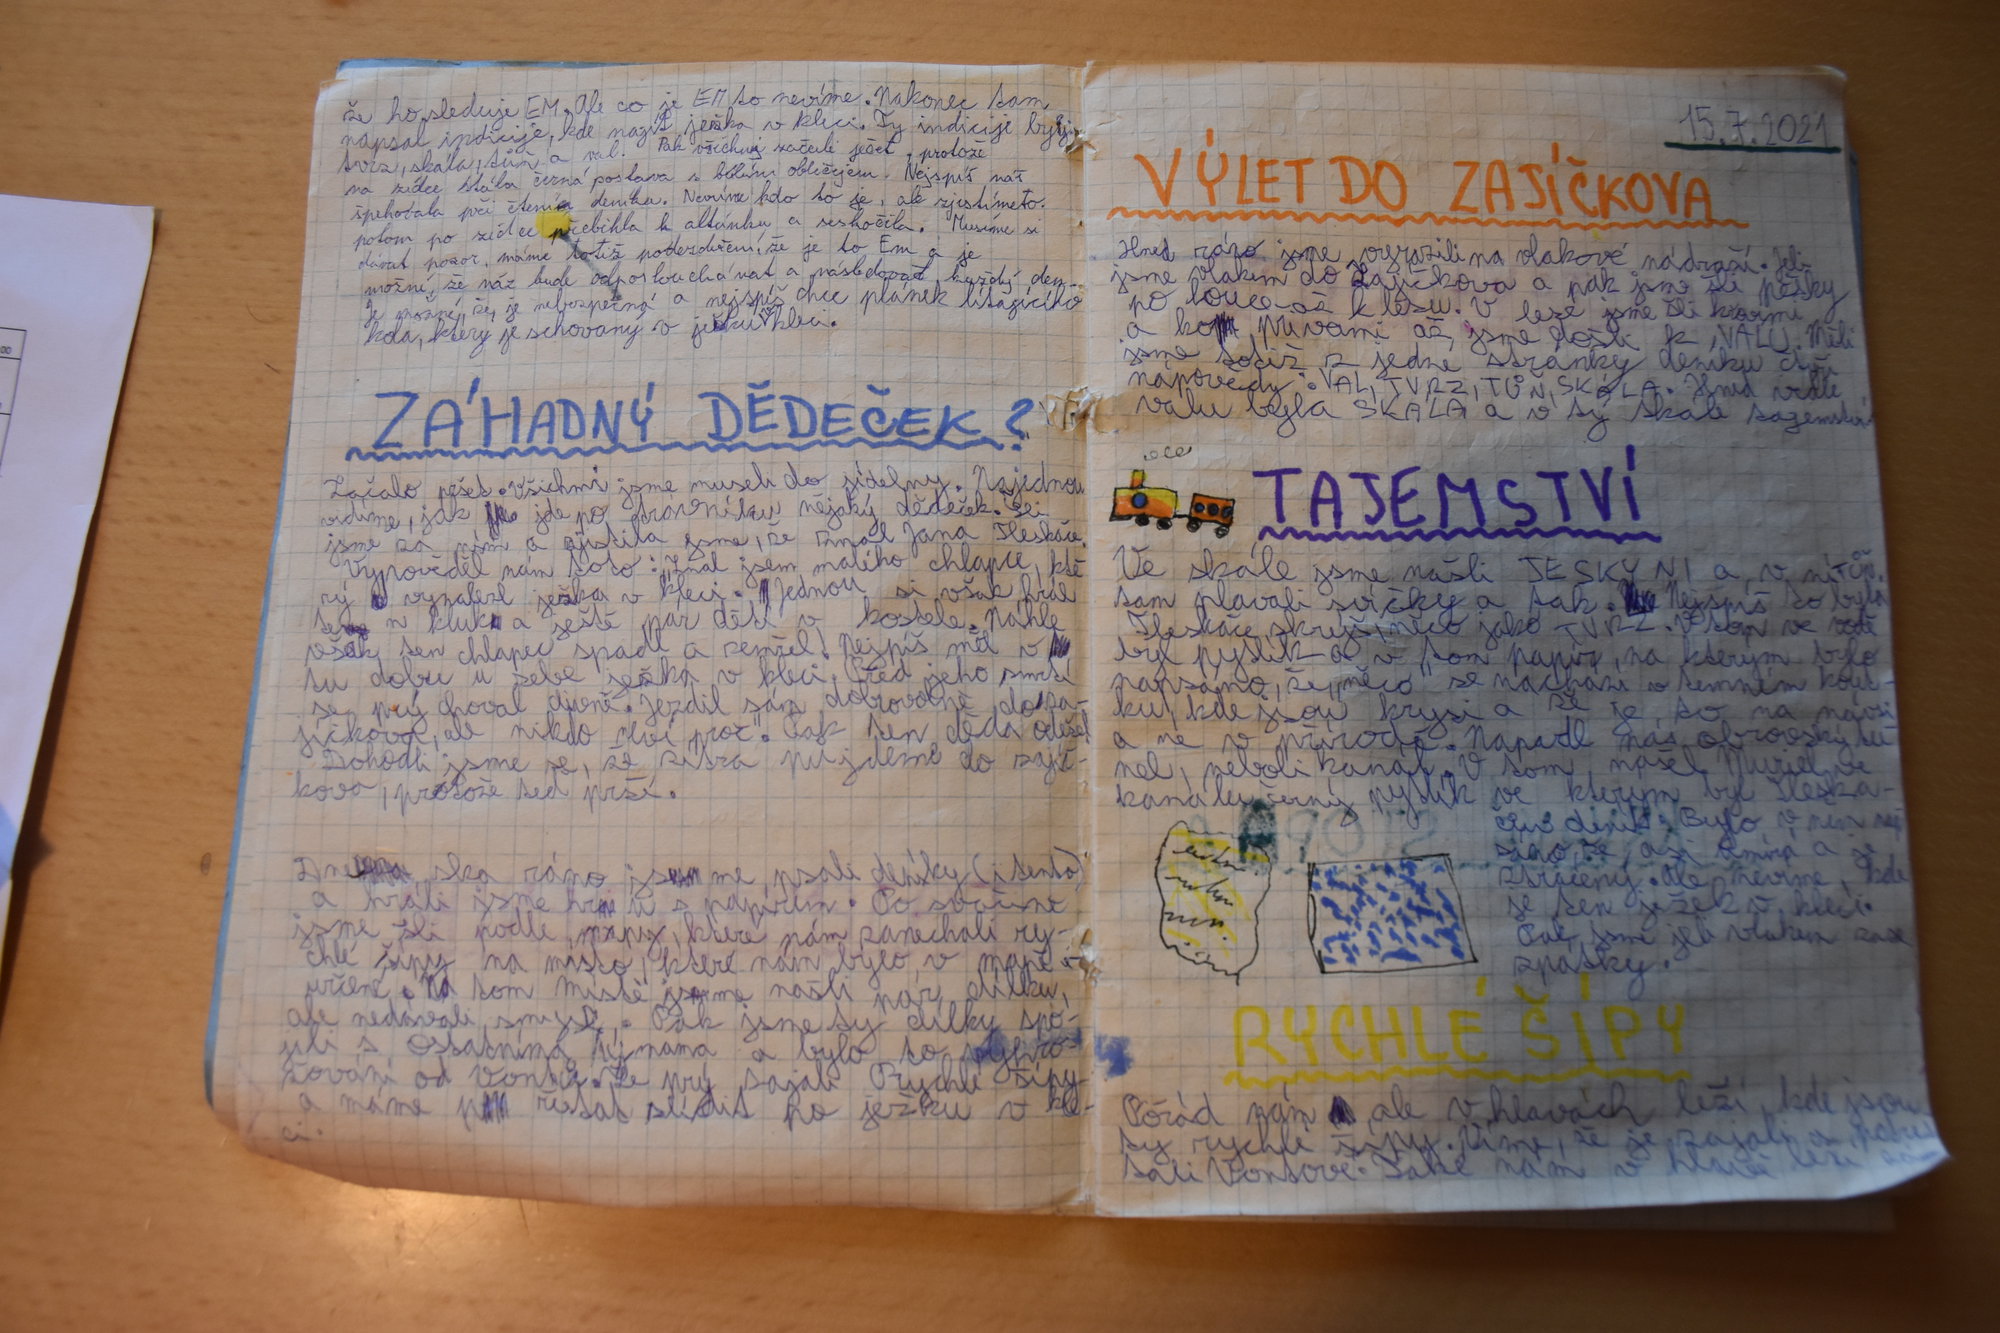 že ho sleduje EM. Ale co je EM to nevíme. Nakonec tam
napsal indicije, kde najít ježka v kleci. Ty indicije byly:
tvrz, skála, tůň a val. Pak všichny začali ječet, protože
na zídce stála černá postava s bílím obličejem. Nejspíš nás
špehovala při čtení deníku. Nevíme kdo to je, ale zjistímeto.
potom po zídce přeběhla k altánku a seskočila. Musíme si
dávat pozor, máme totiž podezdření, že je to Em a je
možní, že náz bude odposlouchávat a následovat každý den.
Je možné, že je nebezpečná a nejspíš chce plánek lítagícího
kola, který je schovaný v ježku v kleci.
ZÁHADNÝ DĚDEČEK?
Začalo pršet. Všichni jsme museli do jídelny. Najednou
vidíme, jak jde po trávníku nějaký dědeček. Šli
jsme za ním a zjistila jsme, že znal Jana Tleskače.
Vypověděl nám toto: „Znal jsem malého chlapce, kte
rý vynalezl ježka v kleci. Jednou si však hrál
n kluk a ještě pár dětí v kostele. Náhle
však ten chlapec spadl a zemřel. Nejspíš měl v
tu dobu u sebe ježka v kleci. Před jeho smrtí
se prý choval divně. Jezdil sám dobrovolně do Za-
jíčkova, ale nikdo neví proč." Pak ten děda odešel
Dohodli jsme se, že zítra pujdeme do zajíč-
kova, protože teď prší.
Dne ska ráno jsme psali deníky (i tento)
a hráli jsme hru s papírem. Po svačině
jsme šli podle mapy, které nám zanechali ry-
chlé šípy na místo, které nám bylo v mapě
určené. Na tom místě jsme našli pár dílků,
ale nedávali smysl. Pak jsme ty dílky spo-
jili s ostatníma týmama a bylo to
od Vontů. Že prý zajali Rychlé šípy
a máme přestat slídit po ježku v kle-
ci.
15.7.2021
VÝLET DO ZAJÍČKOVA
Hned ráno jsme vyrazili na vlakové nádraží. Jeli
jsme vlakem do Zajíčkova a pak jsme šli pěšky
po louce až k lesu. V lese jsme šli křovími
a kopřivami až jsme došli k VALU. Měli
jsme totiž z jedné stránky deníku čtyři
nápovědy: VAL, TVRZ, TŮŇ, SKÁLA. Hned vedle
valu byla SKÁLA a v ty skále tajemství
TAJEMSTVÍ
Ve skále jsme našli JESKYNI a v ní TŮŇ.
tam plavali svíčky a tak. Nejspíš to byla
Tleskače skrýš, něco jako TVRZ. V tom ve vodě
byl pytlík a v tom papír, na kterým bylo
napsáno, že „něco" se nachází v temném kout-
ku, kde jsou krysi a že je to na návsi
a ne v přírodě. Napadl nás obrovský tu
nel, neboli kanál. V tom našel Muriel ve
kanálu černý pytlík ve kterým byl Tleska-
čův deník. Bylo v něm nap
sáno, že asi umírá a je
ztracený. ale nevíme, kde
se ten ježek v kleci.
Pak jsme jeli vlakem zase
zpátky.
RYCHLÉ ŠÍPY
Pořád nám ale v hlavách leží, kde jsou
ty rychlé šípy. Víme, že je zajali a
Vontové. Také nám v hlavě leží